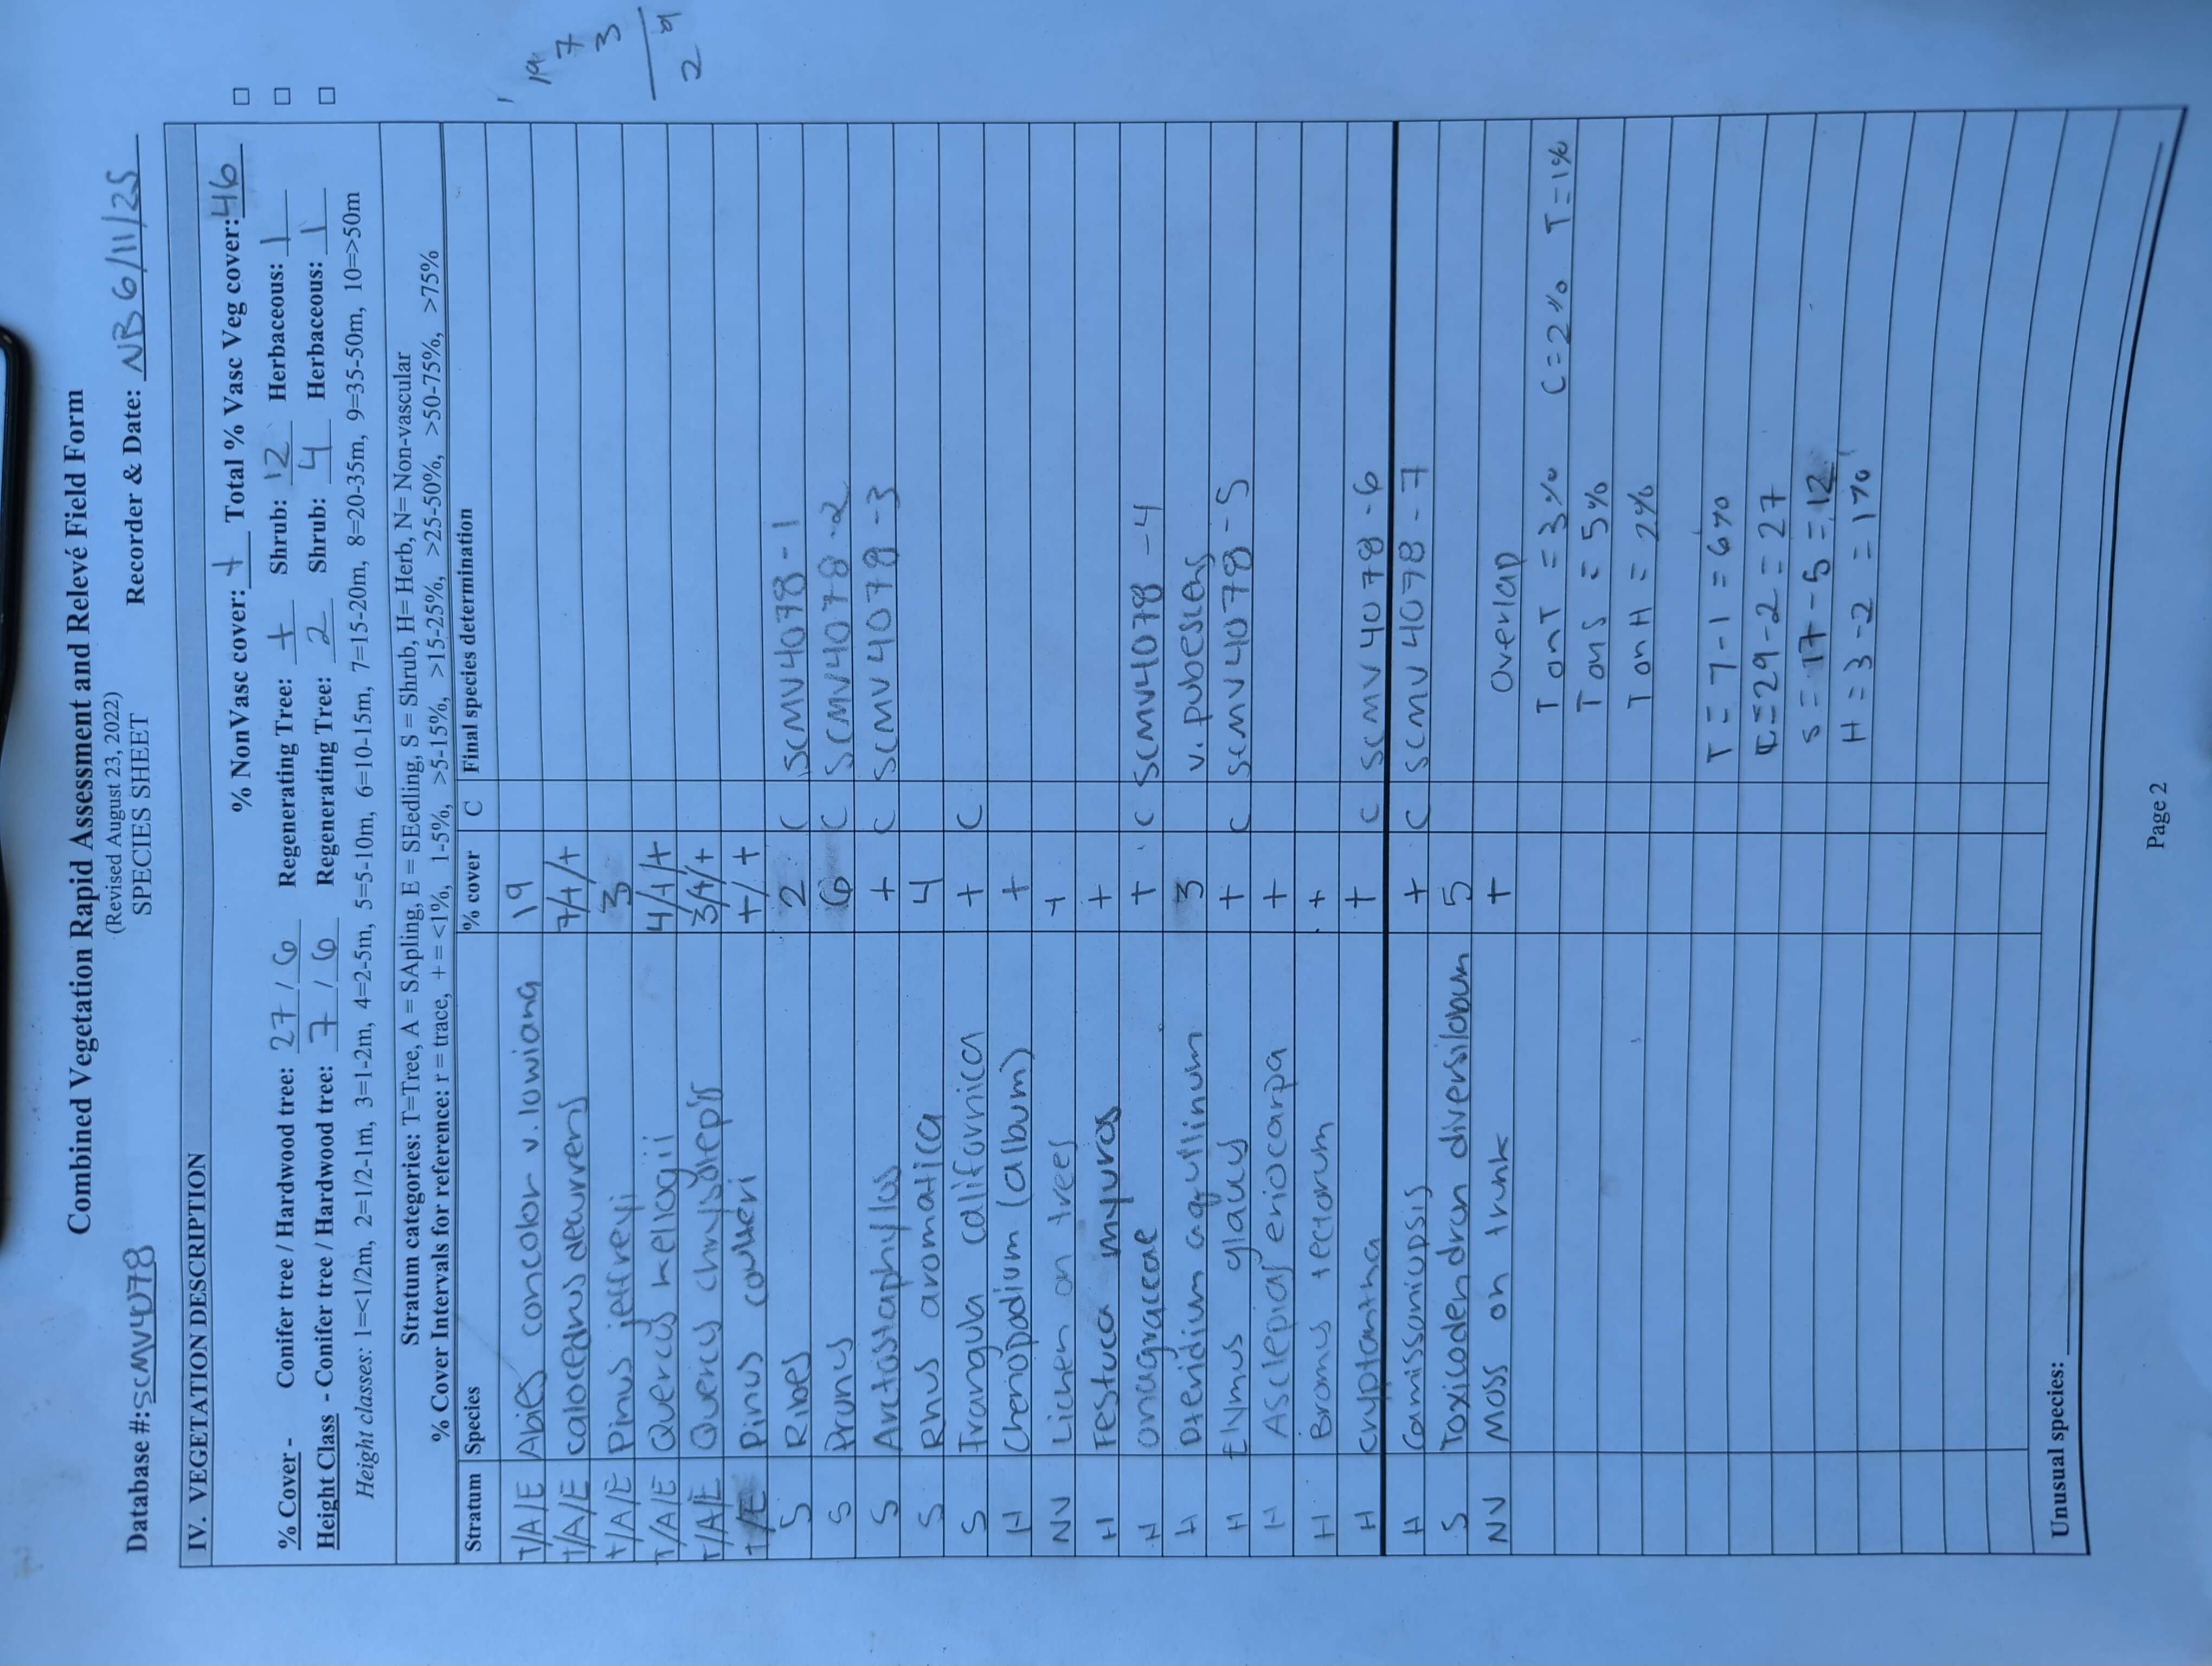 Combined Vegetation Rapid Assessment and Relevé Field Form
(Revised August 23, 2022)
SPECIES SHEET
Database #: SCMV4078 Recorder & Date: NB 6/11/25
IV. VEGETATION DESCRIPTION
% NonVasc cover: + Total % Vasc Veg cover: 46 □
% Cover - Conifer tree / Hardwood tree: 27 / 6 Regenerating Tree: + Shrub: 12 Herbaceous: 1 □
Height Class - Conifer tree / Hardwood tree: 7 / 6 Regenerating Tree: 2 Shrub: 4 Herbaceous: 1 □
Height classes: 1=<1/2m, 2=1/2-1m, 3=1-2m, 4=2-5m, 5=5-10m, 6=10-15m, 7=15-20m, 8=20-35m, 9=35-50m, 10=>50m
Stratum categories: T=Tree, A = SApling, E = SEedling, S = Shrub, H= Herb, N= Non-vascular
% Cover Intervals for reference: r = trace, + = <1%, 1-5%, >5-15%, >15-25%, >25-50%, >50-75%, >75%
Stratum Species % cover C Final species determination
T/A/E Abies concolor v. lowiana 19
T/A/E calocedrus decurrens 7/+/+
T/A/E Pinus jeffreyi 3
T/A/E Quercus kelloggii 4/+/+
T/A/E Quercus chrysolepis 3/+/+
T/E Pinus coulteri +/+
S Ribes 2 C SCMV4078-1
S Prunus 6 C SCMV4078-2
S Arctostaphylos + C SCMV4078-3
S Rhus aromatica 4
S Frangula californica + C
H Chenopodium (album) +
NV Lichen on trees +
H Festuca myuros +
H Onagraceae + C SCMV4078-4
H Pteridium aquilinum 3 v. pubescens
H Elymus glaucus + C SCMV4078-5
H Asclepias eriocarpa +
H Bromus tectorum +
H Cryptantha + C SCMV4078-6
H Camissoniopsis + C SCMV4078-7
S Toxicodendron diversilobum 5
NV Moss on trunk +
Overlap
T on T = 3% C=2% T=1%
T on S = 5%
T on H = 2%
T = 7-1 = 6%
C=29-2 = 27
S = 17-5 = 12
H = 3-2 = 1%
19
7
3
29
Unusual species:
Page 2